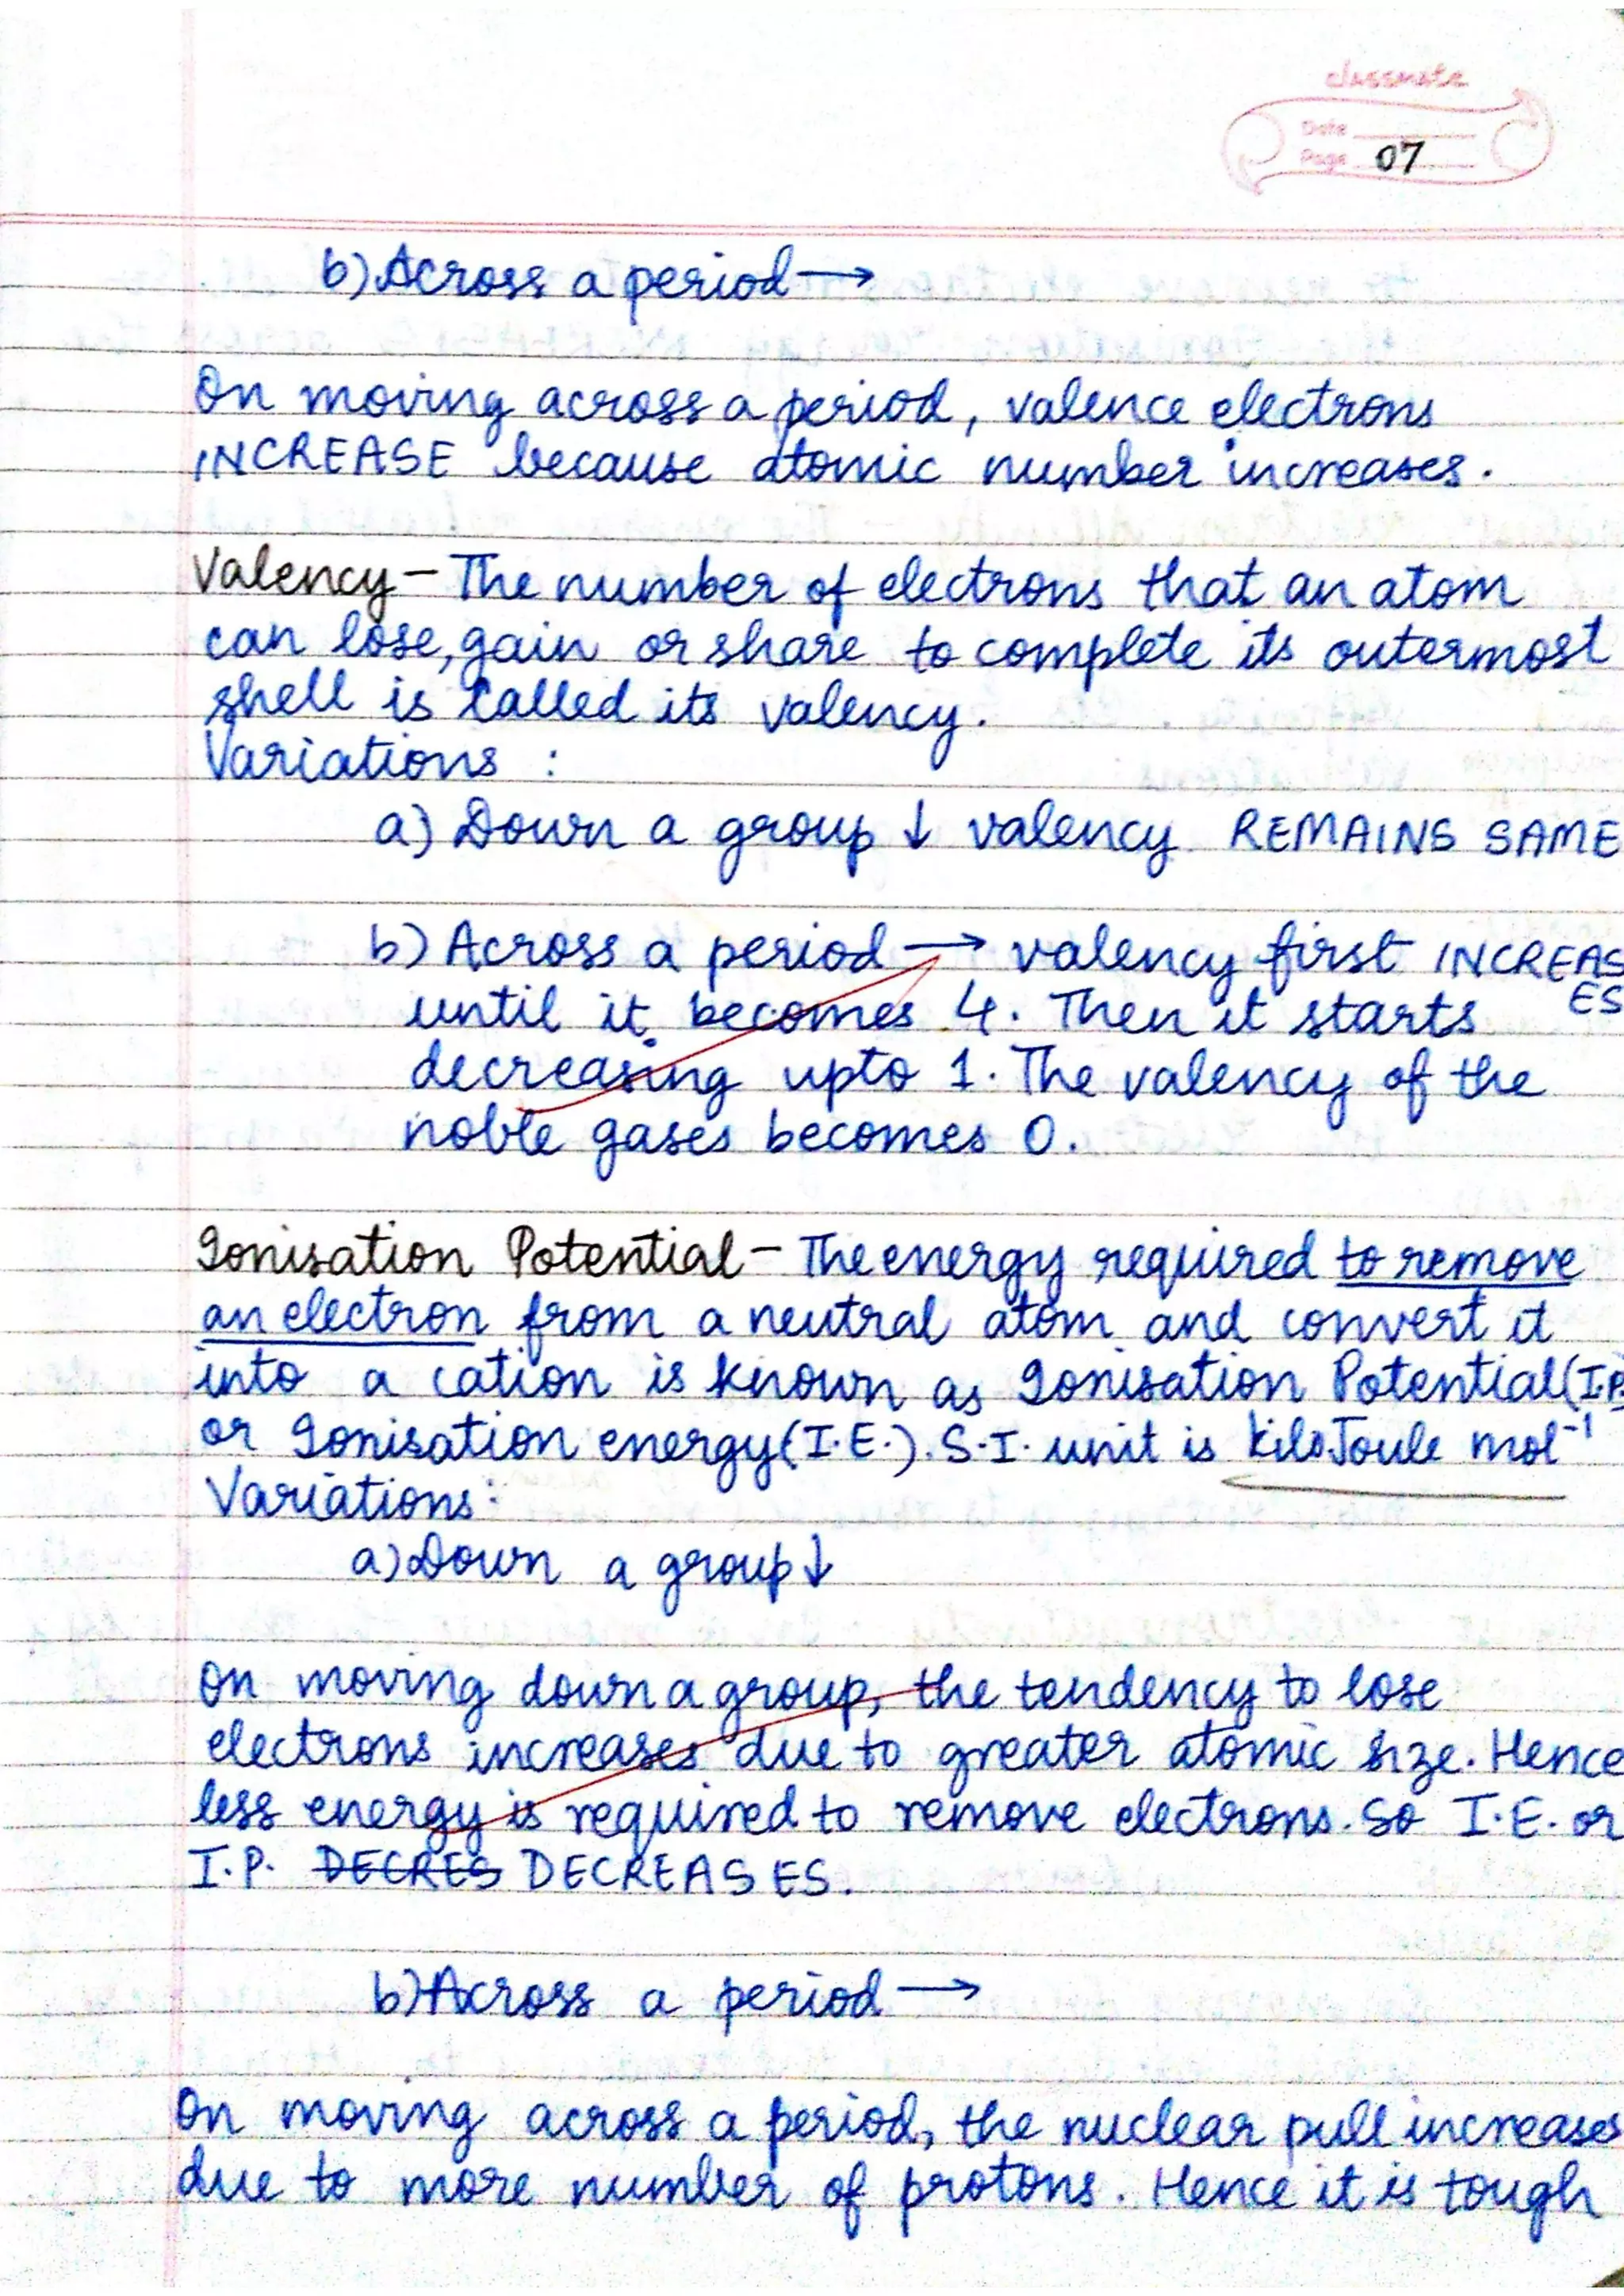 classmate
Date
Page 07
b) Across a period →
On moving across a period, valence electrons
INCREASE because atomic number increases.
Valency – The number of electrons that an atom
can lose, gain or share to complete its outermost
shell is called its valency.
Variations :
a) Down a group ↓ valency REMAINS SAME
b) Across a period → valency first INCREAS
ES
until it becomes 4. Then it starts
decreasing upto 1. The valency of the
noble gases becomes 0.
Ionisation Potential – The energy required to remove
an electron from a neutral atom and convert it
into a cation is known as Ionisation Potential (I.P.
or Ionisation energy (I.E.). S.I. unit is kiloJoule mol⁻¹
Variations:
a) Down a group ↓
On moving down a group, the tendency to lose
electrons increases due to greater atomic size. Hence
less energy is required to remove electrons. So I.E. or
I.P. DECRES DECREASES.
b) Across a period →
On moving across a period, the nuclear pull increases
due to more number of protons. Hence it is tough